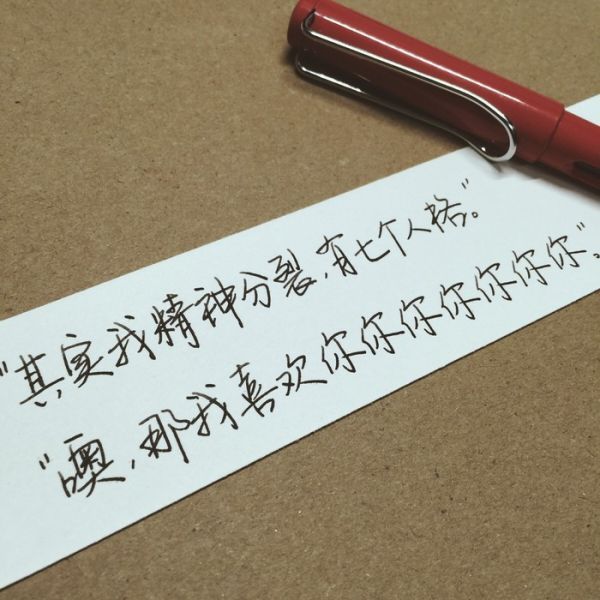 "其实我精神分裂,有七个人格。"
"噢,那我喜欢你你你你你你你".